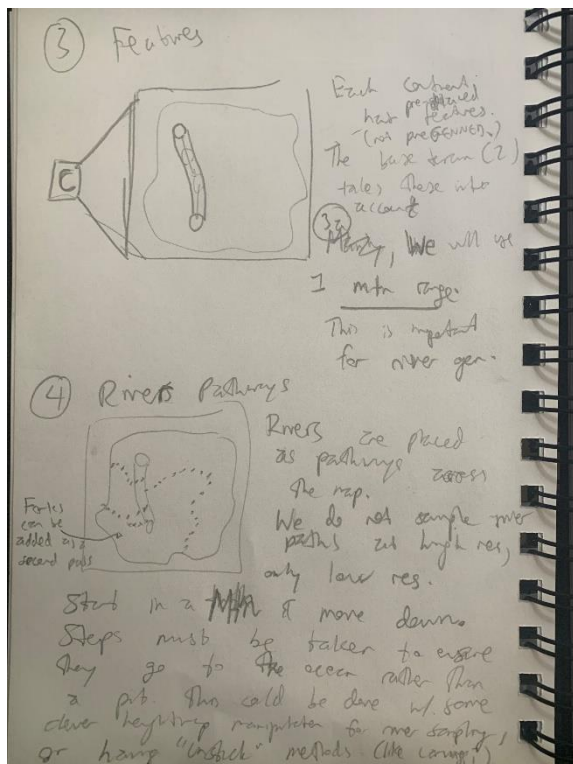 ③ Features
C
Each continent
has pre-placed
features.
(not preGENNED.)
The base terrain (2)
takes these into
account
③a
, We will use
1 mtn range.
This is important
for river gen.
④ Rivers Pathways
Rivers are placed
as pathways across
the map.
We do not sample river
paths at high res,
only low res.
Forks
can be
added as a
second pass
Start in a Mtn & move down.
Steps must be taken to ensure
they go to the ocean rather than
a pit. This could be done w/ some
clever heightmap manipulation for river sampling,
or having "unstick" methods (like carving)